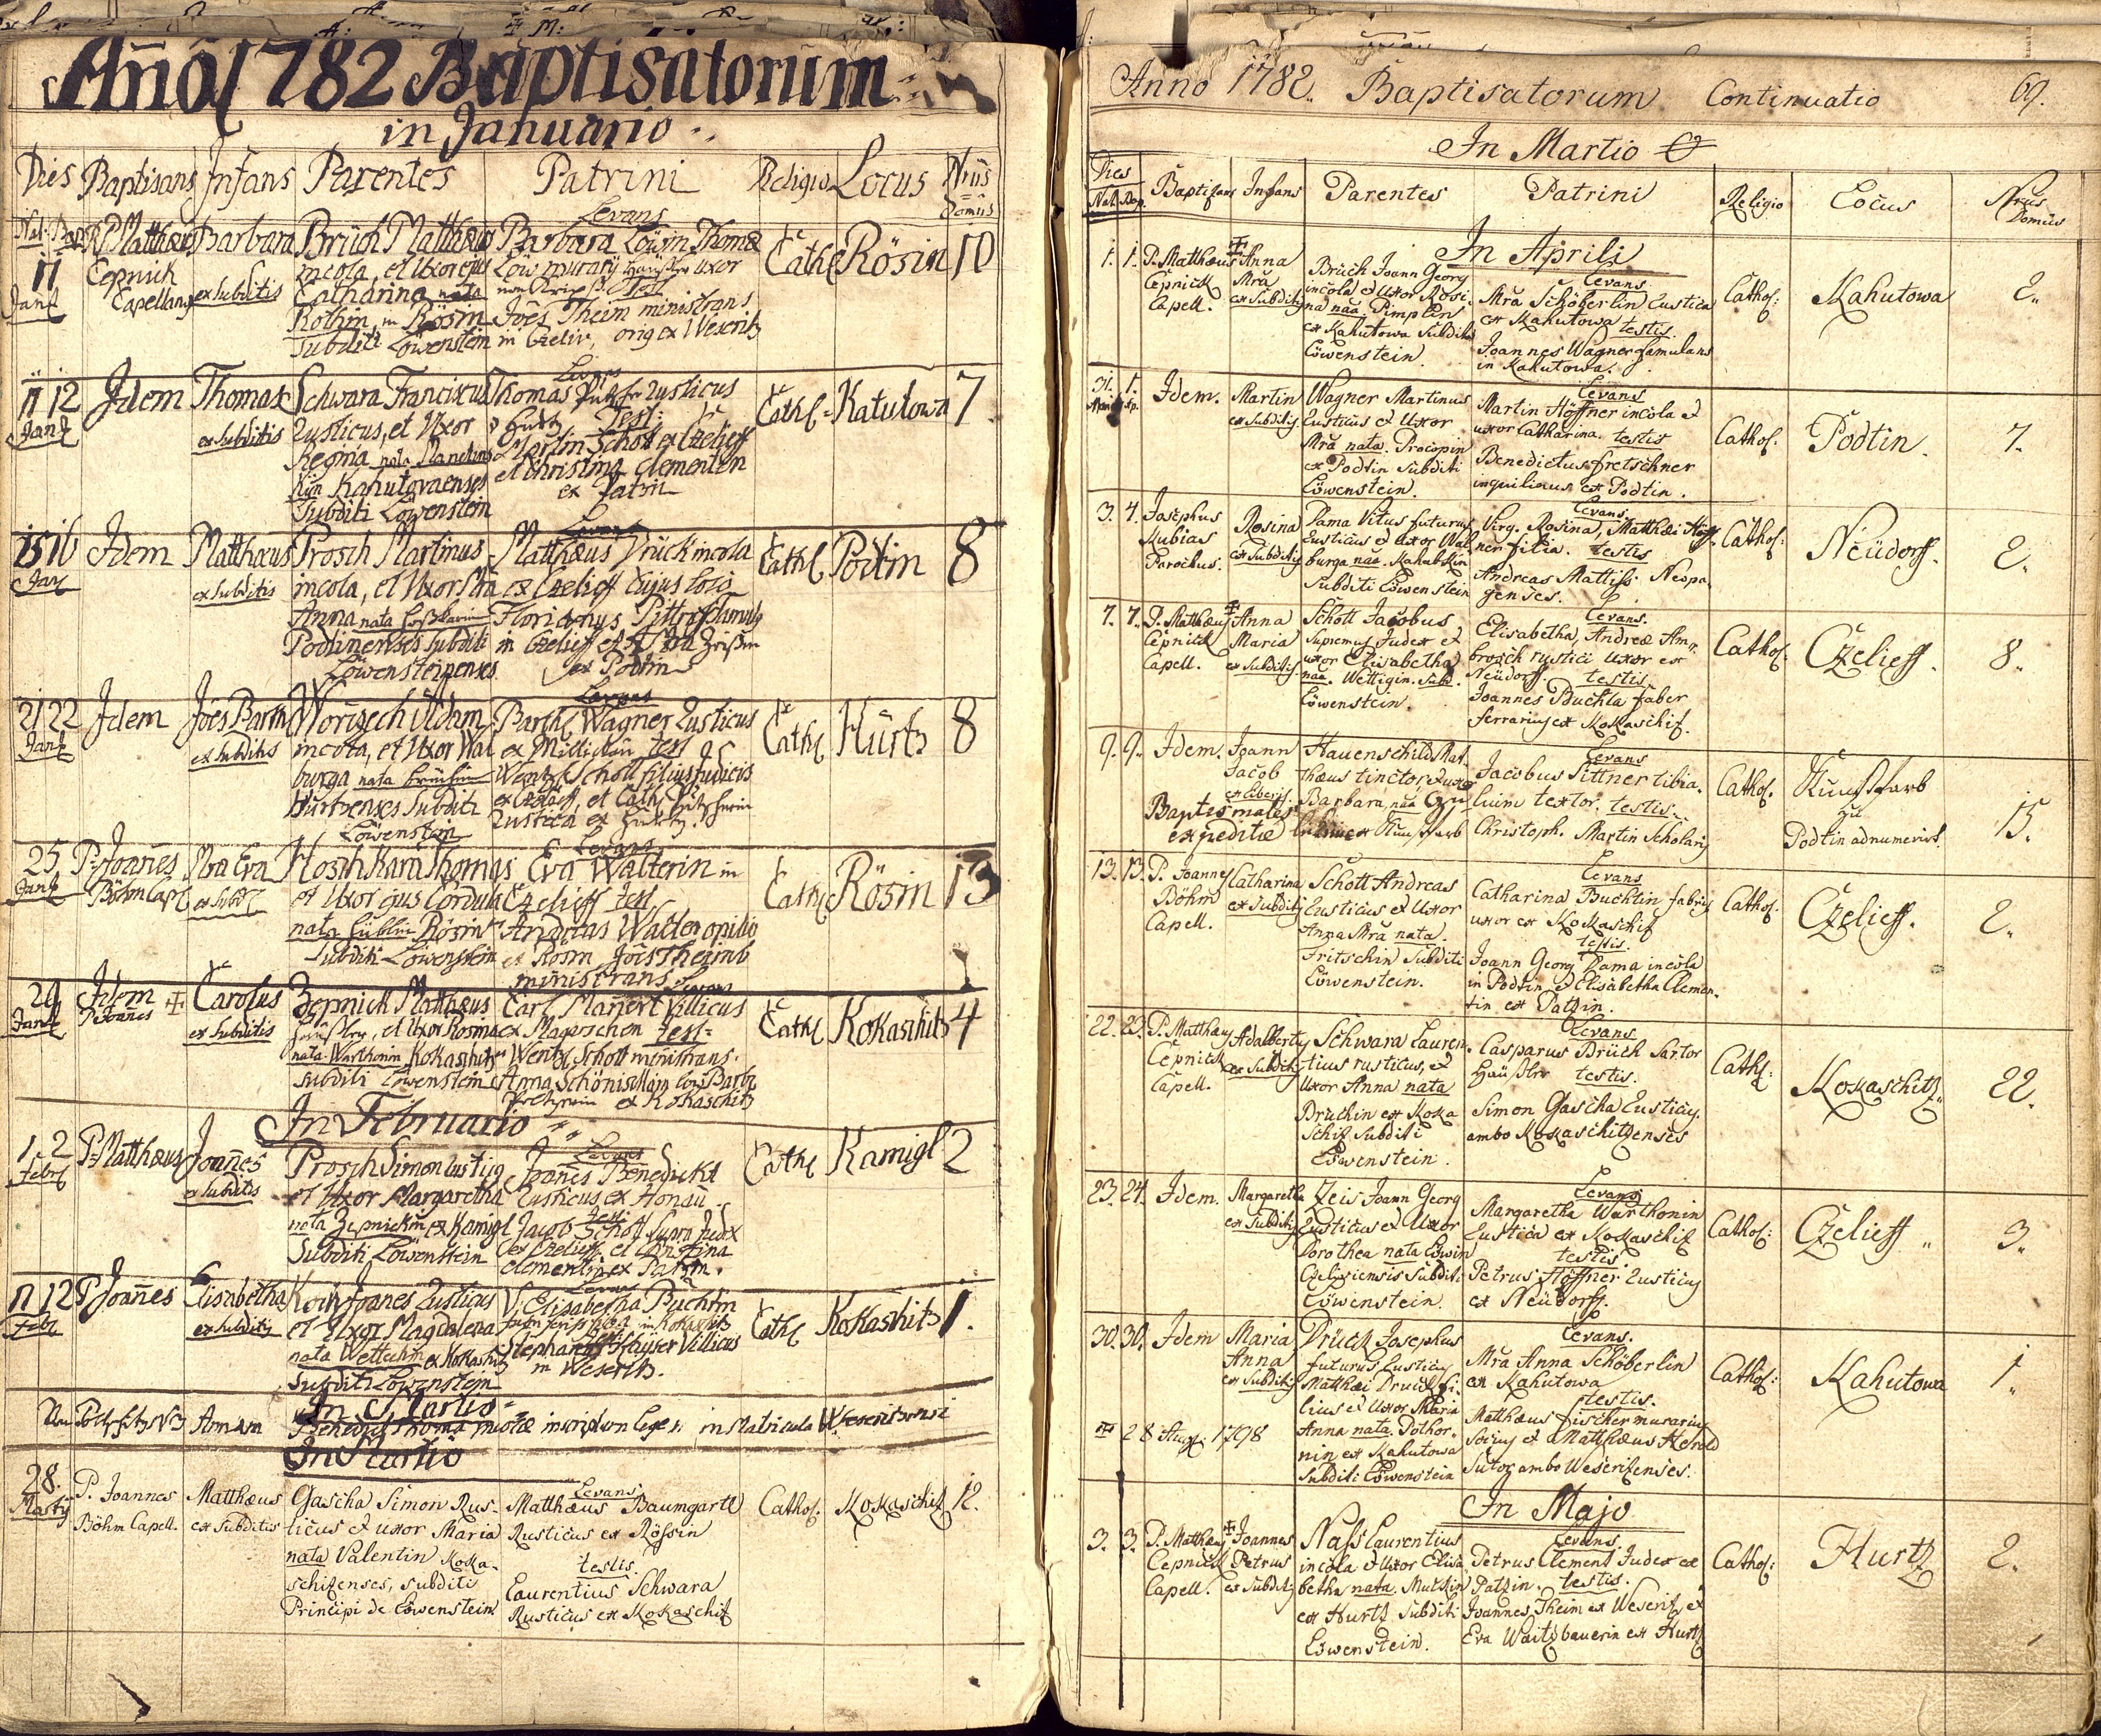 Año 1782 Baptisatorum
in Januario
Dies Baptisans Infans Parentes Patrini Religio Locus Nrus Domus
Nat. Bap.
11
Jan
P. Matthæus
Cepnick
Capellang
Barbara
ex subditis
Brüch Matthæus
incola, et Uxor ejus
Catharina nata
Rothin, in Rösin
Subditi Löwenstein
Levans
Barbara Löwin Thomæ
Löw murarij uxor
Test
Joes Theim ministrans
in Czeliv, orig ex Weseritz
Cath
Rösin
10
11 12
Jan
Idem
Thomas
ex subditis
Schwara Franciscus
Rusticus, et Uxor
Regina nata
Kahutovaenses
Subditi Löwenstein
Levans
Thomas rusticus
Test:
Martin Schott ex Czelieff
et Christina Clementin
ex Patzin
Cath
Katutowa
7
15 16
Jan
Idem
Matthæus
ex subditis
Prosch Martinus
incola, et Uxor Mra
Anna nata
Podtinenses subditi
Löwensteinenses
Levans
Matthæus Drück incola
ex Czelieff cujus loco
Florianus famulus
in Czelieff et
ex Podtin
Cath
Podtin
8
21 22
Jan
Idem
Joes Barth
ex subditis
Worizech Adam
incola, et Uxor Wal
burga nata
Hurtzenses Subditi
Löwenstein
Levans
Barth Wagner Rusticus
ex test
Wentz Schott filius Judicis
ex et Cath
Rustica ex
Cath
Hürtz
8
25
Jan
P. Joañes
Böhm Cap
Mra Eva
ex Subd
Thomas
et Uxor ejus Cordula
nata Rösin
Subditi Löwenstein
Levans
Eva Walterin in
Czelieff test
Andreas Walter opilio
ex Rosin Joes Theimb
ministrans
Cath
Rösin
13
29
Jan
Idem
P. Joañes
Carolus
ex subditis
Zepnick Matthæus
et Uxor Rosina
nata Warthonin Kokaschitz
subditi Löwenstein
Levans
Carl Mañert Villicus
ex Magoschen test
Wentz Schott ministrans.
Anna
ex Kokaschitz
Cath
Kokaschitz
4
In Februario
1 2
Febr
P. Matthæus
Joañes
ex subditis
Prosch Simon rusticg
et Uxor Margaretha
nata Zepnickin ex Kamigl
Subditi Löwenstein
Levans
Joañes Benedickt
Rusticus ex Honau
test
Jacob Schott Supra Judex
ex Czelieff et Christina
Clementin ex Patzin.
Cath
Kamigl
2
11 12
Febr
P. Joañes
Elisabetha
ex subditis
Joanes Rusticus
et Uxor Magdalena
nata ex Kokaschitz
Subditi Löwenstein
Levans
V. Elisabetha Buchtin
in Kokaschitz
Stephanus Villicus
in Weseritz.
Cath
Kokashitz
1.
In Martio
Annam
Benedict Thoma incolæ inscriptum leges in Matricula
In Martio
28.
Martij
P. Joannes
Böhm Capell.
Matthæus
ex subditis
Gascha Simon Rus-
ticus et uxor Maria
nata Valentin Koka-
schizenses, subditi
Principi de Löwenstein
Levans
Matthæus Baumgartl
Rusticus ex Rössin
testis.
Laurentius Schwara
Rusticus ex Kokaschitz
Cathol:
Kokaschitz
12.
Anno 1782. Baptisatorum Continuatio 69.
In Martio
Dies
Nat. Bap.
Baptizans Infans Parentes Patrini Religio Locus Nrus Domus
In Aprili
1. 1.
P. Matthæus
Cepnick
Capell.
Anna
Mra
ex Subditis
Brüch Joann Georg
incola et Uxor Rosi-
na naa Pimplin
ex Kahutowa Subditi
Löwenstein
Levans
Mra Schöberlin Rustica
ex Kahutowa testis.
Joannes Wagner famulans
in Kahutowa.
Cathol:
Kahutowa
2.
31. 1.
Idem.
Martin
ex subditis
Wagner Martinus
Rusticus et Uxor
Mra nata Procopin
ex Podtin Subditi
Löwenstein.
Levans
Martin Höffner incola et
uxor Catharina. testis
Benedictus Fretschner
inquilinus ex Podtin.
Cathol:
Podtin.
7.
3. 4.
Josephus
Kubias
Parochus.
Rosina
ex Subditis
Dama Vitus futurus
Rusticus et uxor Wal-
burga naa. Kahabskin
Subditi Löwenstein
Levans
Virg. Rosina, Matthæi Höff-
ner filia. testis
Andreas Mattiss Neopa
genses.
Cathol:
Neüdorff.
2.
7. 7.
P. Matthæus
Cepnick
Capell.
Anna
Maria
ex subditis
Schott Jacobus
Supremus Judex et
uxor Elisabetha
naa. Wettigin. Subd.
Löwenstein.
Levans.
Elisabetha, Andreæ Am-
brosch rustici uxor ex
Neüdorff. testis.
Joannes Buchta faber
ferrarius ex Kokaschitz.
Cathol:
Czelieff.
8.
9. 9.
Idem.
Joann
Jacob
ex liberis.
Baptismales
expeditæ
Hauenschild Mat-
thæus tinctor, et uxor
Barbara, naa
Levans
Jacobus Pittner tibia-
lium textor. testis.
Christoph. Martin Scholaris
Cathol.
zu
Podtin adnumerirt.
15.
13. 13.
P. Joannes
Böhm
Capell.
Catharina
ex Subditis
Schott Andreas
Rusticus et Uxor
Anna Mra nata.
Fritschin Subditi
Löwenstein.
Levans
Catharina Buchtin fabris
uxor ex Kokaschitz
testis.
Joann Georg Dama incola
in Podtin, et Elisabetha Clemen-
tin ex Patzin.
Cathol.
Czelieff.
2.
22. 23.
P. Matthæus
Cepnick
Capell.
Adalbertus
ex Subditis
Schwara Lauren-
tius rusticus, et
Uxor Anna nata
Druckin ex Koka
schitz Subditi
Löwenstein.
Levans
Casparus Brüch Sartor
Häüßler testis.
Simon Gascha Rusticus.
ambo Kokaschitzenses
Cathol:
Kokaschitz.
22.
23. 24.
Idem.
Margaretha
ex Subditis
Zeis Joann Georg
Rusticus et Uxor
Dorothea nata Löwin
Czeliviensis Subditi
Löwenstein.
Levans
Margaretha Warthonin
Rustica ex Kokaschitz
testis
Petrus Höffner Rusticus
ex Neüdorff.
Cathol:
Czelieff
3.
30. 30.
Idem
Maria
Anna
ex Subditis
28 Aug. 1798
Drück Josephus
futurus Rusticus
Matthæi Druck fi-
lius et Uxor Maria
Anna nata. Pothor-
nin ex Kahutowa
Subditi Löwenstein
Levans.
Mra Anna Schöberlin
ex Kahutowa
testis.
Matthæus Fischer murarius
Socius et Matthæus Herold
Sutor ambo Weseritzenses.
Cathol:
Kahutowa
1.
In Majo
3. 3.
P. Matthæus
Cepnick
Capell.
Joannes
Petrus
ex Subditis
Nass Laurentius
incola et Uxor Elisa
betha nata. Mutzin
ex Hurtz Subditi
Löwenstein.
Levans.
Petrus Clement Judex ex
Patzin. testis.
Joannes Theim ex Weseritz, et
Eva Waitzbauerin ex Hurtz
Cathol:
Hurtz
2.